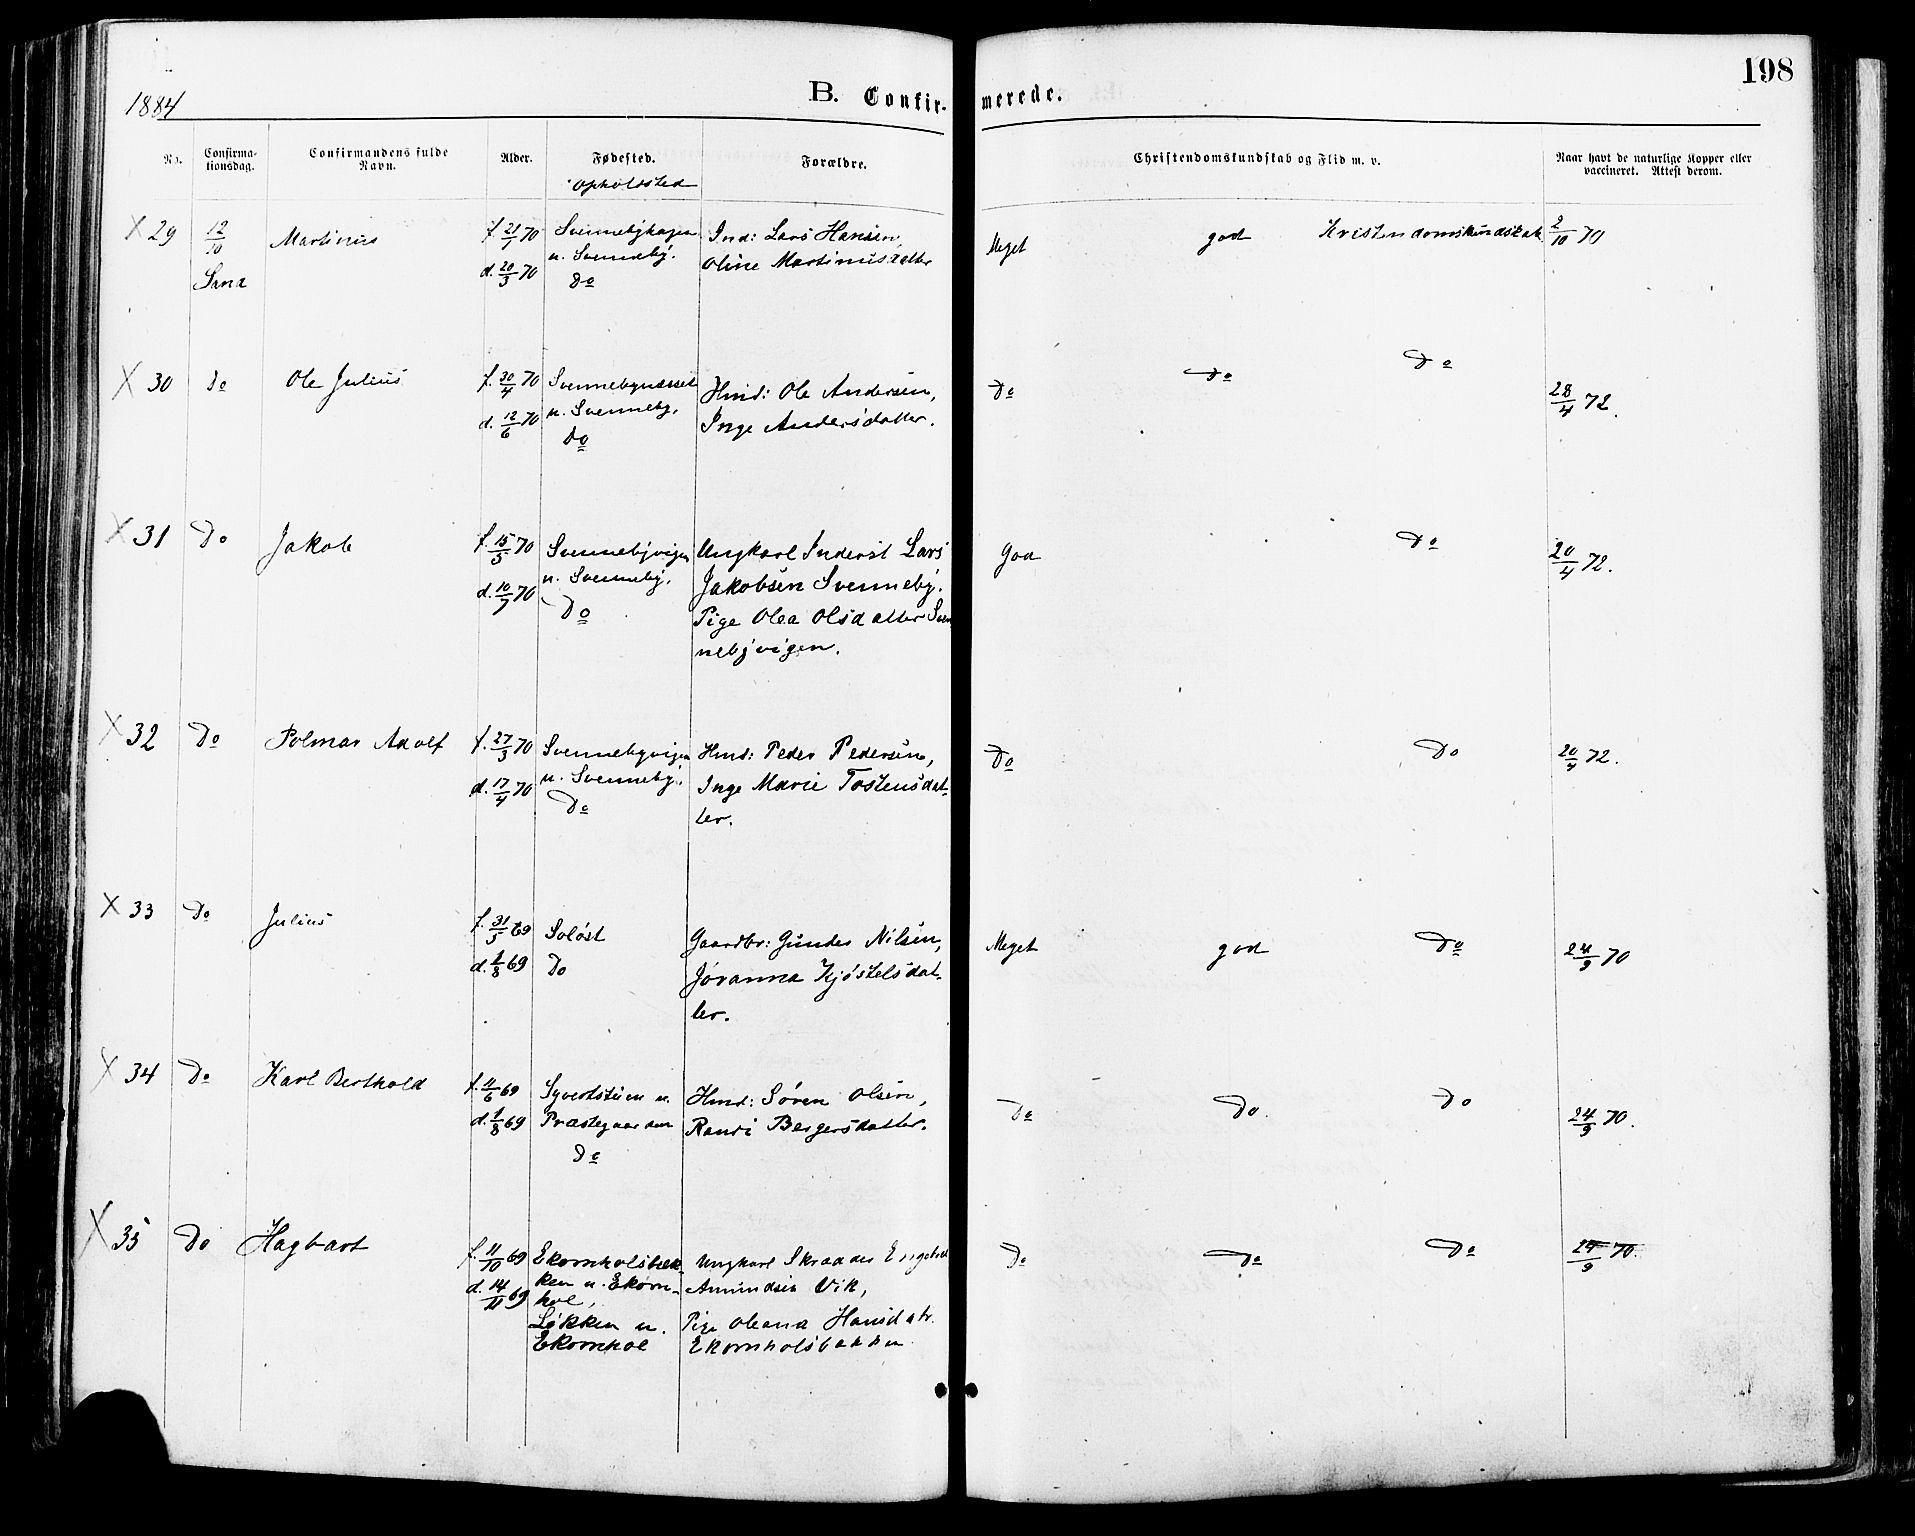 198
1884
B. Confir-
merede.
No.
Confirma-
tionsdag.
Confirmandens fulde
Navn.
Alder.
Fødested.
Opholdsted
Forældre.
Christendomskundskab og Flid m. v.
Naar havt de naturlige Kopper eller
vaccineret. Attest derom.
X 29
12/10
Sand
Martinus
f. 21/1 70
d. 20/3 70
Svennebyhagen
u. Svenneby.
Do
Ind: Lars Hansen,
Oline Martinusdatter
Meget god Kristendomskundskab
2/10 70
X 30
Do
Ole Julius
f. 30/4 70
d. 12/6 70
Svennebynæsset
u. Svenneby.
Do
Hmd: Ole Andersen,
Inge Andersdatter.
Do Do Do
28/4 72.
X 31
Do
Jakob
f. 15/5 70
d. 10/7 70
Svennebyvigen
u. Svenneby.
Do
Ungkarl Inderst Lars
Jakobsen Svenneby.
Pige Olea Olsdatter Sven
nebyvigen.
God Do
20/4 72.
X 32
Do
Polmar Adolf
f. 27/3 70
d. 17/4 70
Svennebyvigen
u. Svenneby.
Do
Hmd: Peder Pedersen,
Inge Marie Tostensdat-
ter.
Do Do
20/4 72.
X 33
Do
Julius
f. 31/5 69
d. 1/8 69
Soløst
Do
Gaardbr: Gunder Nilsen,
Jøranna Kjøstelsdat-
ter.
Meget god Do
24/9 70
X 34
Do
Karl Berthold
f. 11/6 69
d. 1/8 69
Syverstuen u.
Præstegaarden
Do
Hmd: Søren Olsen,
Randi Bergersdatter.
Do Do. Do
24/9 70.
X 35
Do
Hagbart
f. 11/10 69
d. 14/11 69
Ekornholsbæk-
ken u. Ekorn-
hol,
Løkken u.
Ekornhol
Ungkarl Skrædder Engebret
Amundsen Vik,
Pige Oleana Hansdatr.
Ekornholsbakken
Do Do Do
24/9 70.